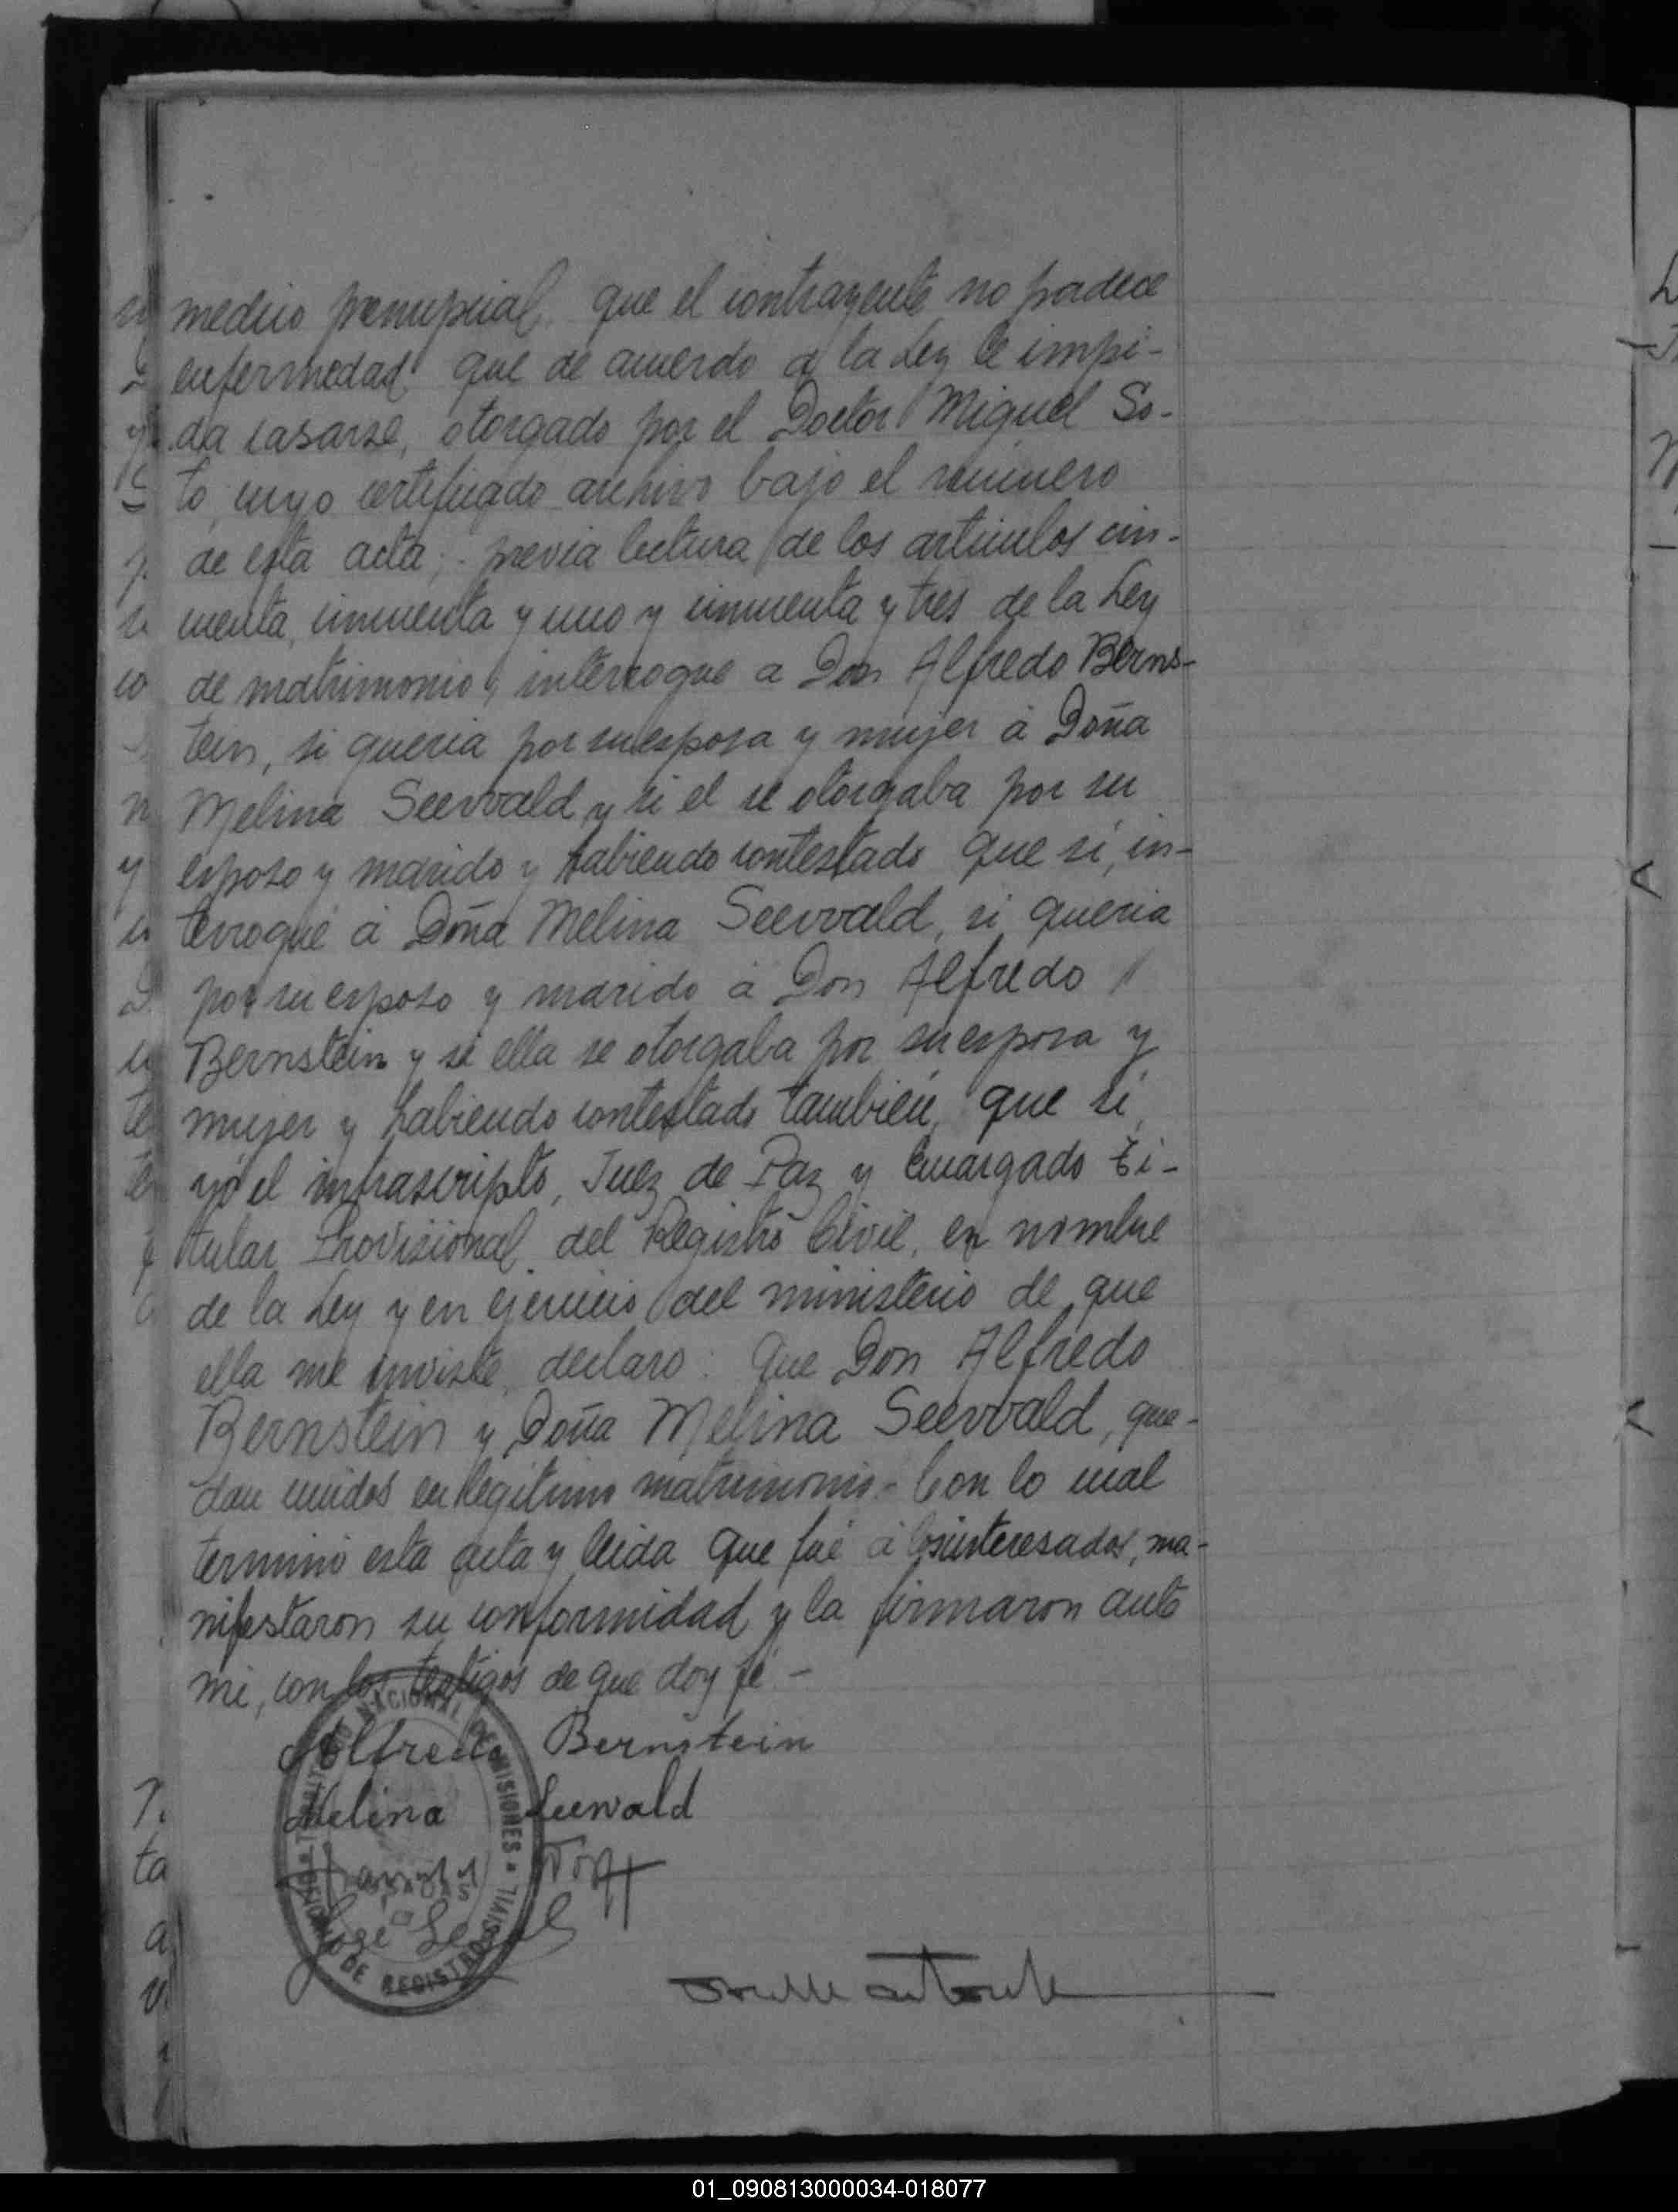 medico prenupcial, que el contrayente no padece
enfermedad que de acuerdo a la Ley le impi-
da casarse, otorgado por el Doctor Miguel So-
to, cuyo certificado archivo bajo el número
de esta acta; previa lectura de los articulos cin-
cuenta, cincuenta y uno y cincuenta y tres de la Ley
de matrimonio, interrogue a Don Alfredo Berns-
tein, si queria por su esposa y mujer á Doña
Melina Seewald y si el se otorgaba por su
esposo y marido y habiendo contestado que sí, in-
terrogué á Doña Melina Seewald, si queria
por su esposo y marido á Don Alfredo
Bernstein y si ella se otorgaba por su esposa y
mujer y habiendo contestado también, que sí,
yó el infrascripto, Juez de Paz y Encargado Ti-
tular Provisional del Registro Civil, en nombre
de la Ley y en ejercicio del ministerio de que
ella me inviste, declaro: Que Don Alfredo
Bernstein y Doña Melina Seewald, que-
dan unidos en legitimo matrimonio.- Con lo cual
terminó esta acta y leida que fué á los interesados, ma-
nifestaron su conformidad y la firmaron ante
mi, con los testigos de que doy fé -
Alfredo Bernstein
Melina Seewald
José
NACIONAL DE MISIONES
OFICINA DE REGISTRO CIVIL
01_090813000034-018077